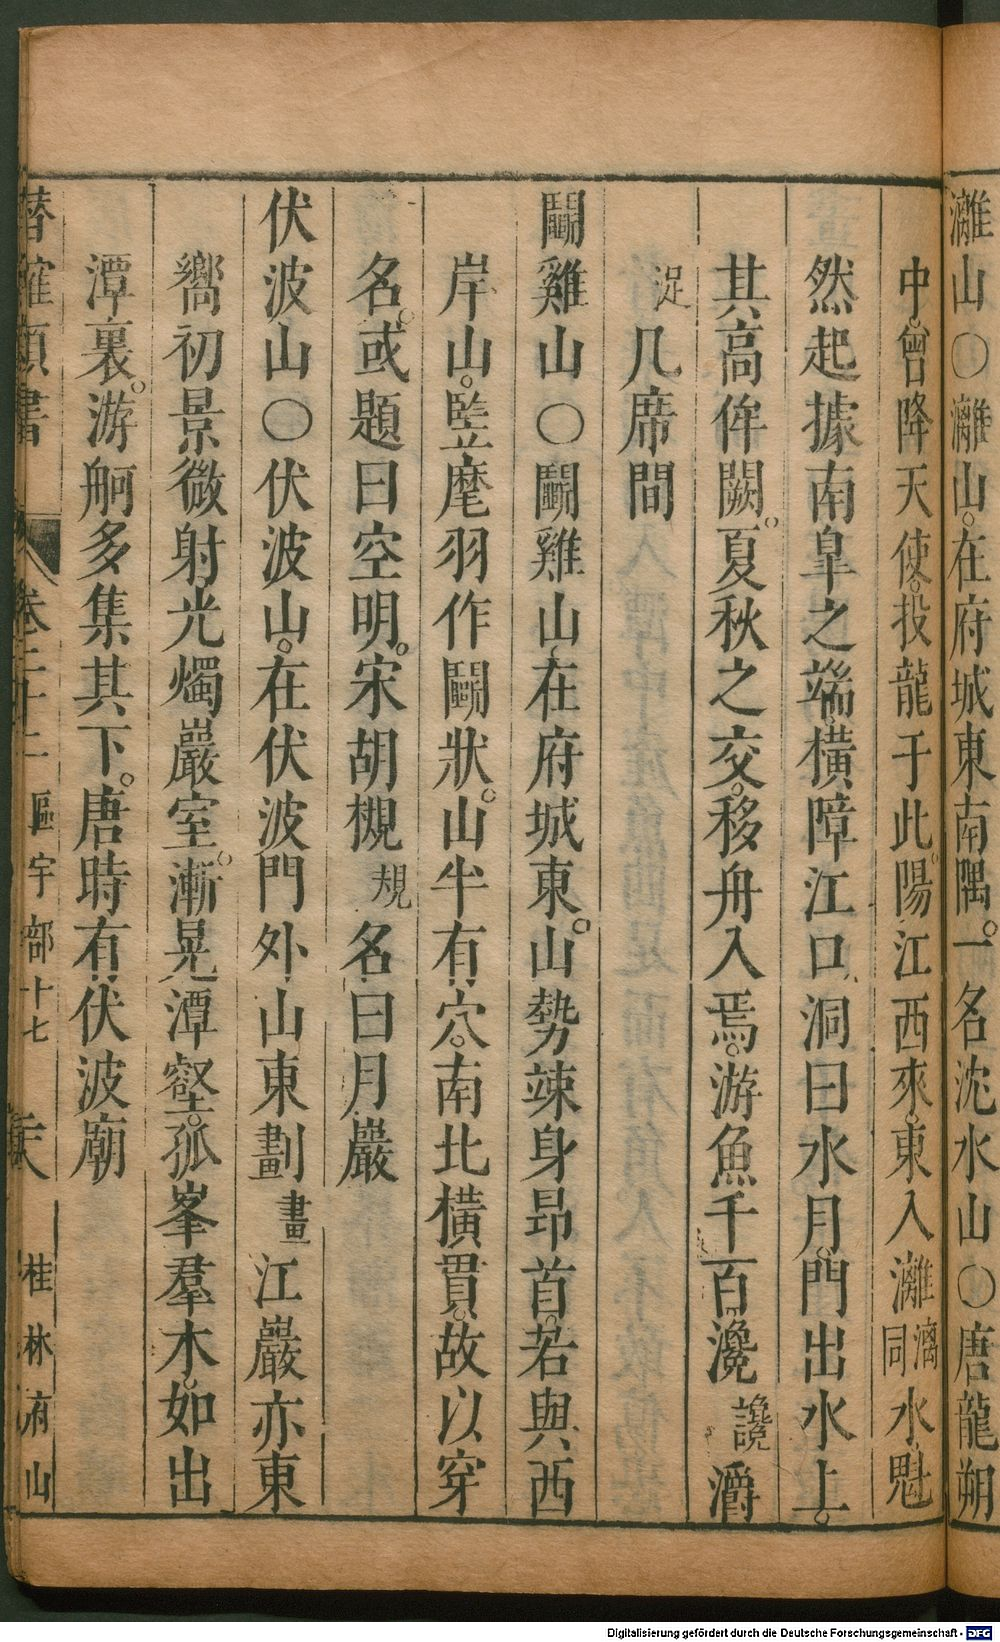 灕山○灕山。在府城東南隅。一名沈水山○唐龍朔
中。曾降天使。投龍于此。陽江西來。東入灕漓同水。魁
然起據南皐之端。橫障江口。洞曰水月。門出水上。
其高侔闕。夏秋之交。移舟入焉。游魚千百。瀺讒灂
浞几席間
鬭雞山○鬭雞山。在府城東。山勢竦身昂首。若與西
岸山。竪麾羽作鬭狀。山半有穴。南北橫貫。故以穿
名。或題曰空明。宋胡槻規名曰月巖
伏波山○伏波山。在伏波門外。山東劃畫江巖亦東
嚮。初景微射。光燭巖室。漸晃潭壑。孤峯羣木。如出
潭裏。游舸多集其下。唐時有伏波廟
卷二十二 區宇部十七 桂林府山
Digitalisierung gefördert durch die Deutsche Forschungsgemeinschaft - DFG